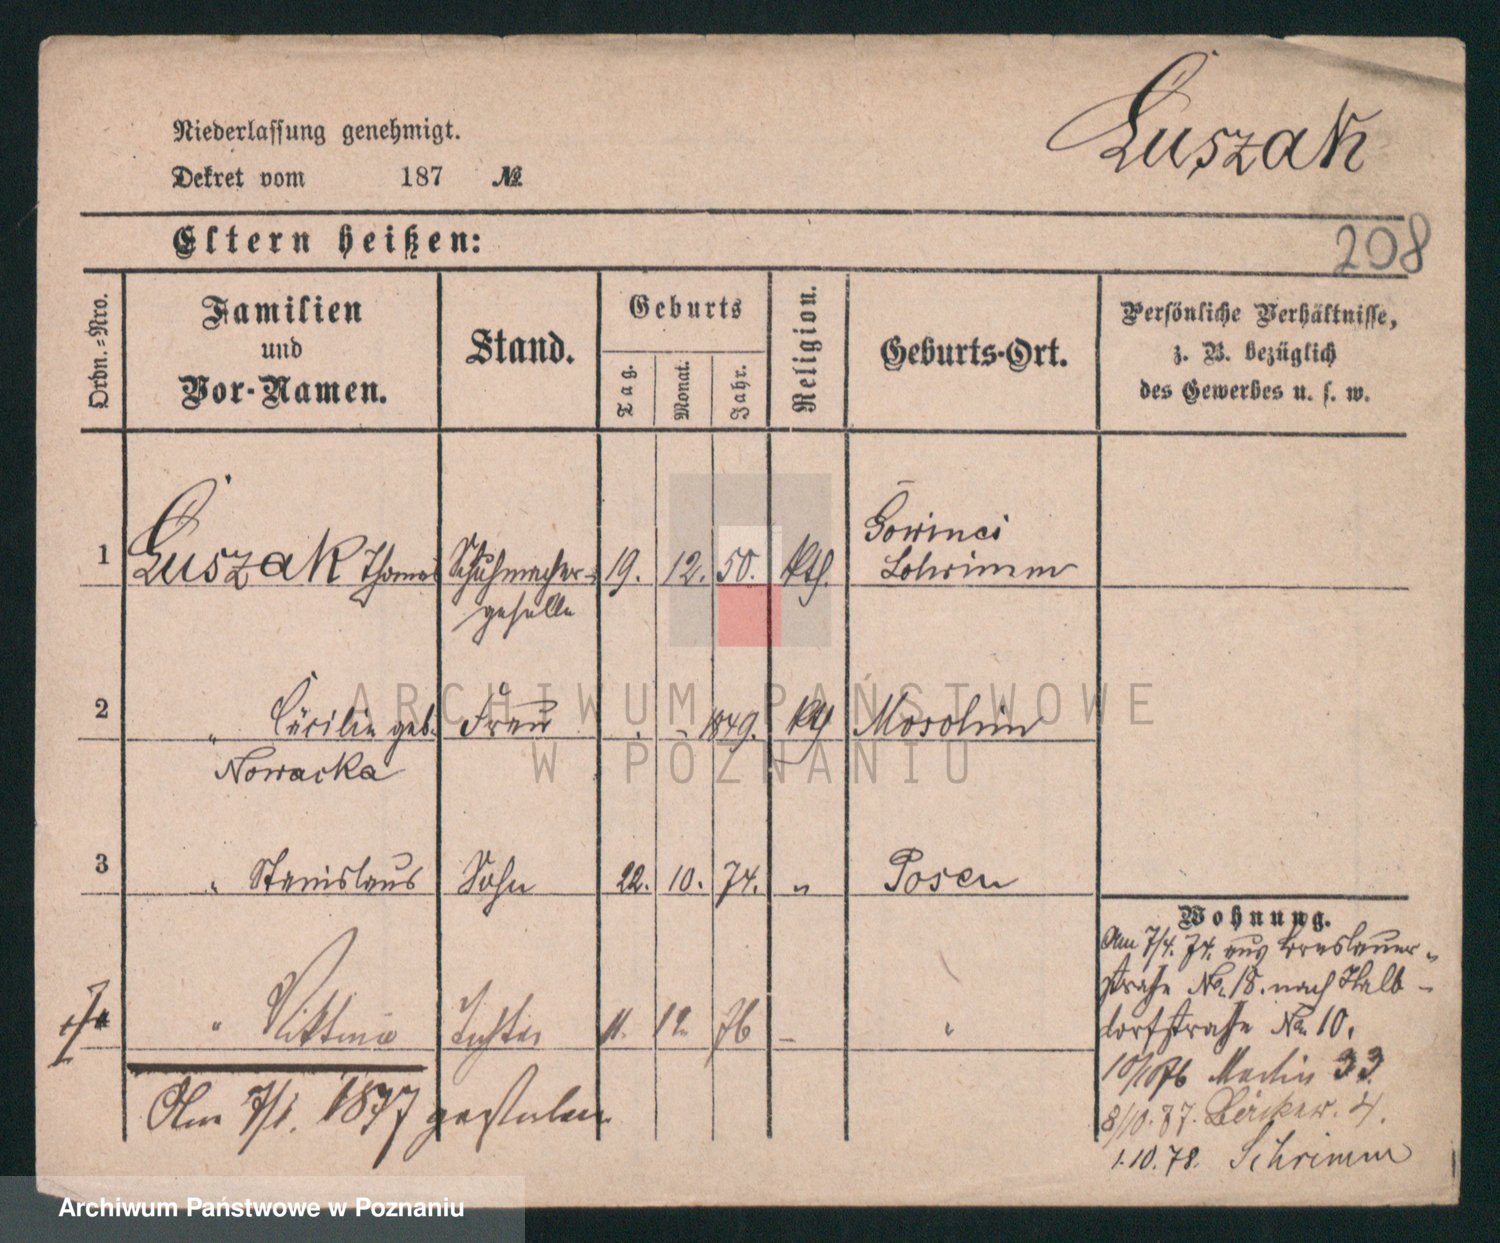 Luszak
Niederlassung genehmigt.
Dekret vom 187 №
208
Eltern heißen:
Ordn.=Nro.
Familien
und
Vor-Namen.
Stand.
Geburts
Tag.
Monat.
Jahr.
Religion.
Geburts-Ort.
Persönliche Verhältnisse,
z. B. bezüglich
des Gewerbes u. s. w.
1 Luszak Thomas Schuhmacher- 19. 12. 50. kth.
geselle
Schrimm
2 " Cäcilie geb. Frau 1849. kth Moschin
Nowacka
3 " Stanislaus Sohn 22. 10. 74. " Posen
" Viktoria Tochter 11. 12 76 "
Am 7/1. 1877 gestorben
Wohnung.
Am 7/4. 74. aus Breslauer-
straße No. 18. nach Halb-
dorfstraße No 10.
10/10 76 Martin 33
8/10. 77.
1.10.78. Schrimm
ARCHIWUM PAŃSTWOWE
W POZNANIU
Archiwum Państwowe w Poznaniu